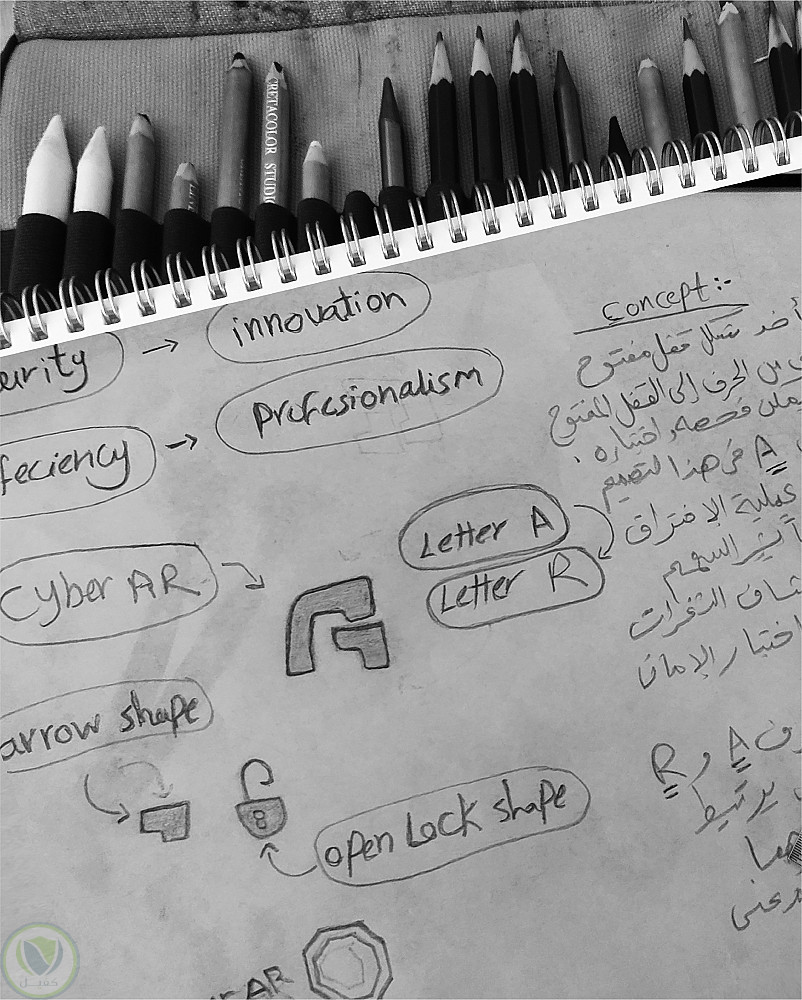 CRETACOLOR STUDIO
urity → innovation
feciency → Profesionalism
Cyber AR
Letter A
Letter R
arrow shape
open Lock shape
AR
Concept:-
أخد شكل قفل مفتوح
من الحرف إلى القفل المفتوح
فحصه واختباره.
A في هذا التصميم
عملية الاختراق
السهم
الثغرات
اختبار الأمان
A و R
يرتبط
كفيل